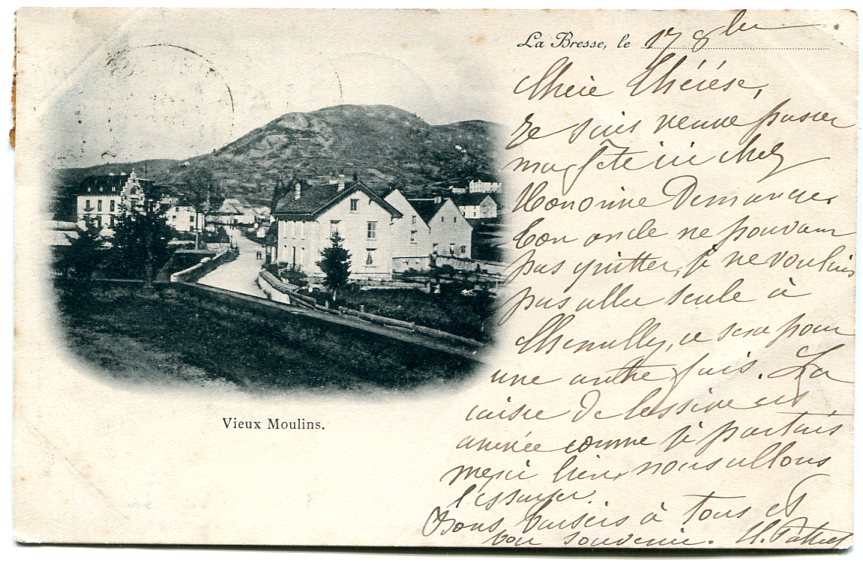 La Bresse, le 17 8bre
Chère Thérèse,
Je suis venue passer
ma fête ici chez
Honorine Demange,
ton oncle ne pouvant
pas quitter, je ne voulais
pas aller seule à
Chenully, ce sera pour
une autre fois. La
caisse de lessive est
arrivée comme je partais
merci bien, nous allons
l'essayer.
Bons baisers à tous et
bon souvenir. H.
Vieux Moulins.